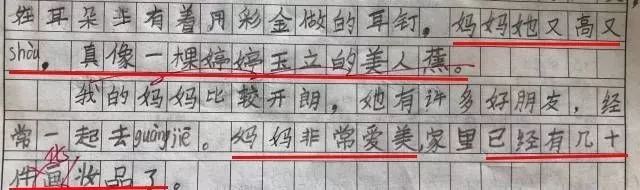 娃耳朵上有着用彩金做的耳钉。妈妈她又高又
shòu。真像一棵婷婷玉立的美人蕉。
我的妈妈比较开朗,她有许多好朋友,经
常一起去guàngjiē。妈妈非常爱美,家里已经有几十
件画化妆品了。